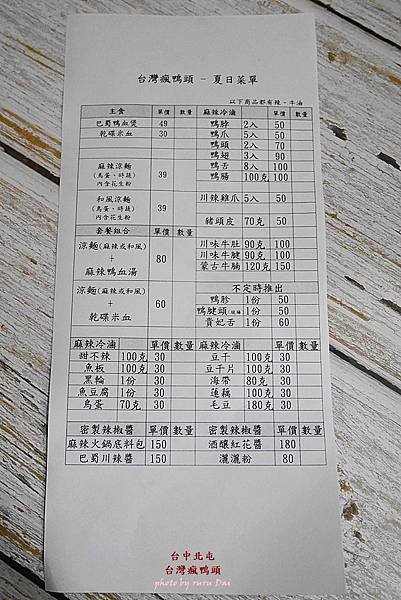 台灣瘋鴨頭 - 夏日菜單
以下商品都有辣、牛油
主食 單價 數量 麻辣冷滷 單價 數量
巴蜀鴨血煲 49 鴨脖 2入 50
乾碟米血 30 鴨爪 5入 50
鴨頭 2入 70
鴨翅 3入 90
麻辣涼麵 鴨舌 8入 100
(鳥蛋、時蔬) 39 鴨腸 100克 100
內含花生粉
和風涼麵 川辣雞爪 5入 50
(鳥蛋、時蔬) 39
內含花生粉 豬頭皮 70克 50
套餐組合 單價 數量
涼麵(麻辣或和風) 川味牛肚 90克 100
+ 80 川味牛腱 90克 100
麻辣鴨血湯 蒙古牛腩 120克 150
涼麵(麻辣或和風) 不定時推出
+ 60 鴨胗 1份 50
乾碟米血 鴨腱頭 1份 50
貴妃舌 1份 60
麻辣冷滷 單價 數量 麻辣冷滷 單價 數量
甜不辣 100克 30 豆干 100克 30
魚板 100克 30 豆干片 100克 30
黑輪 1份 30 海帶 80克 30
魚豆腐 1份 30 蓮藕 100克 30
鳥蛋 70克 30 毛豆 180克 30
密製辣椒醬 單價 數量 密製辣椒醬 單價 數量
麻辣火鍋底料包 150 酒釀紅花醬 180
巴蜀川辣醬 150 灑灑粉 80
台中北屯
台灣瘋鴨頭
photo by ruru Dai